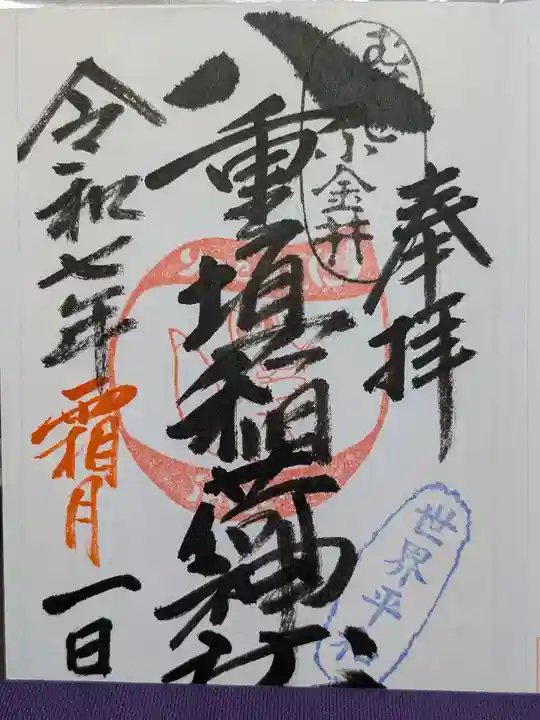 奉拝
むさし小金井
八重垣稲荷神社
世界平和
令和七年霜月一日